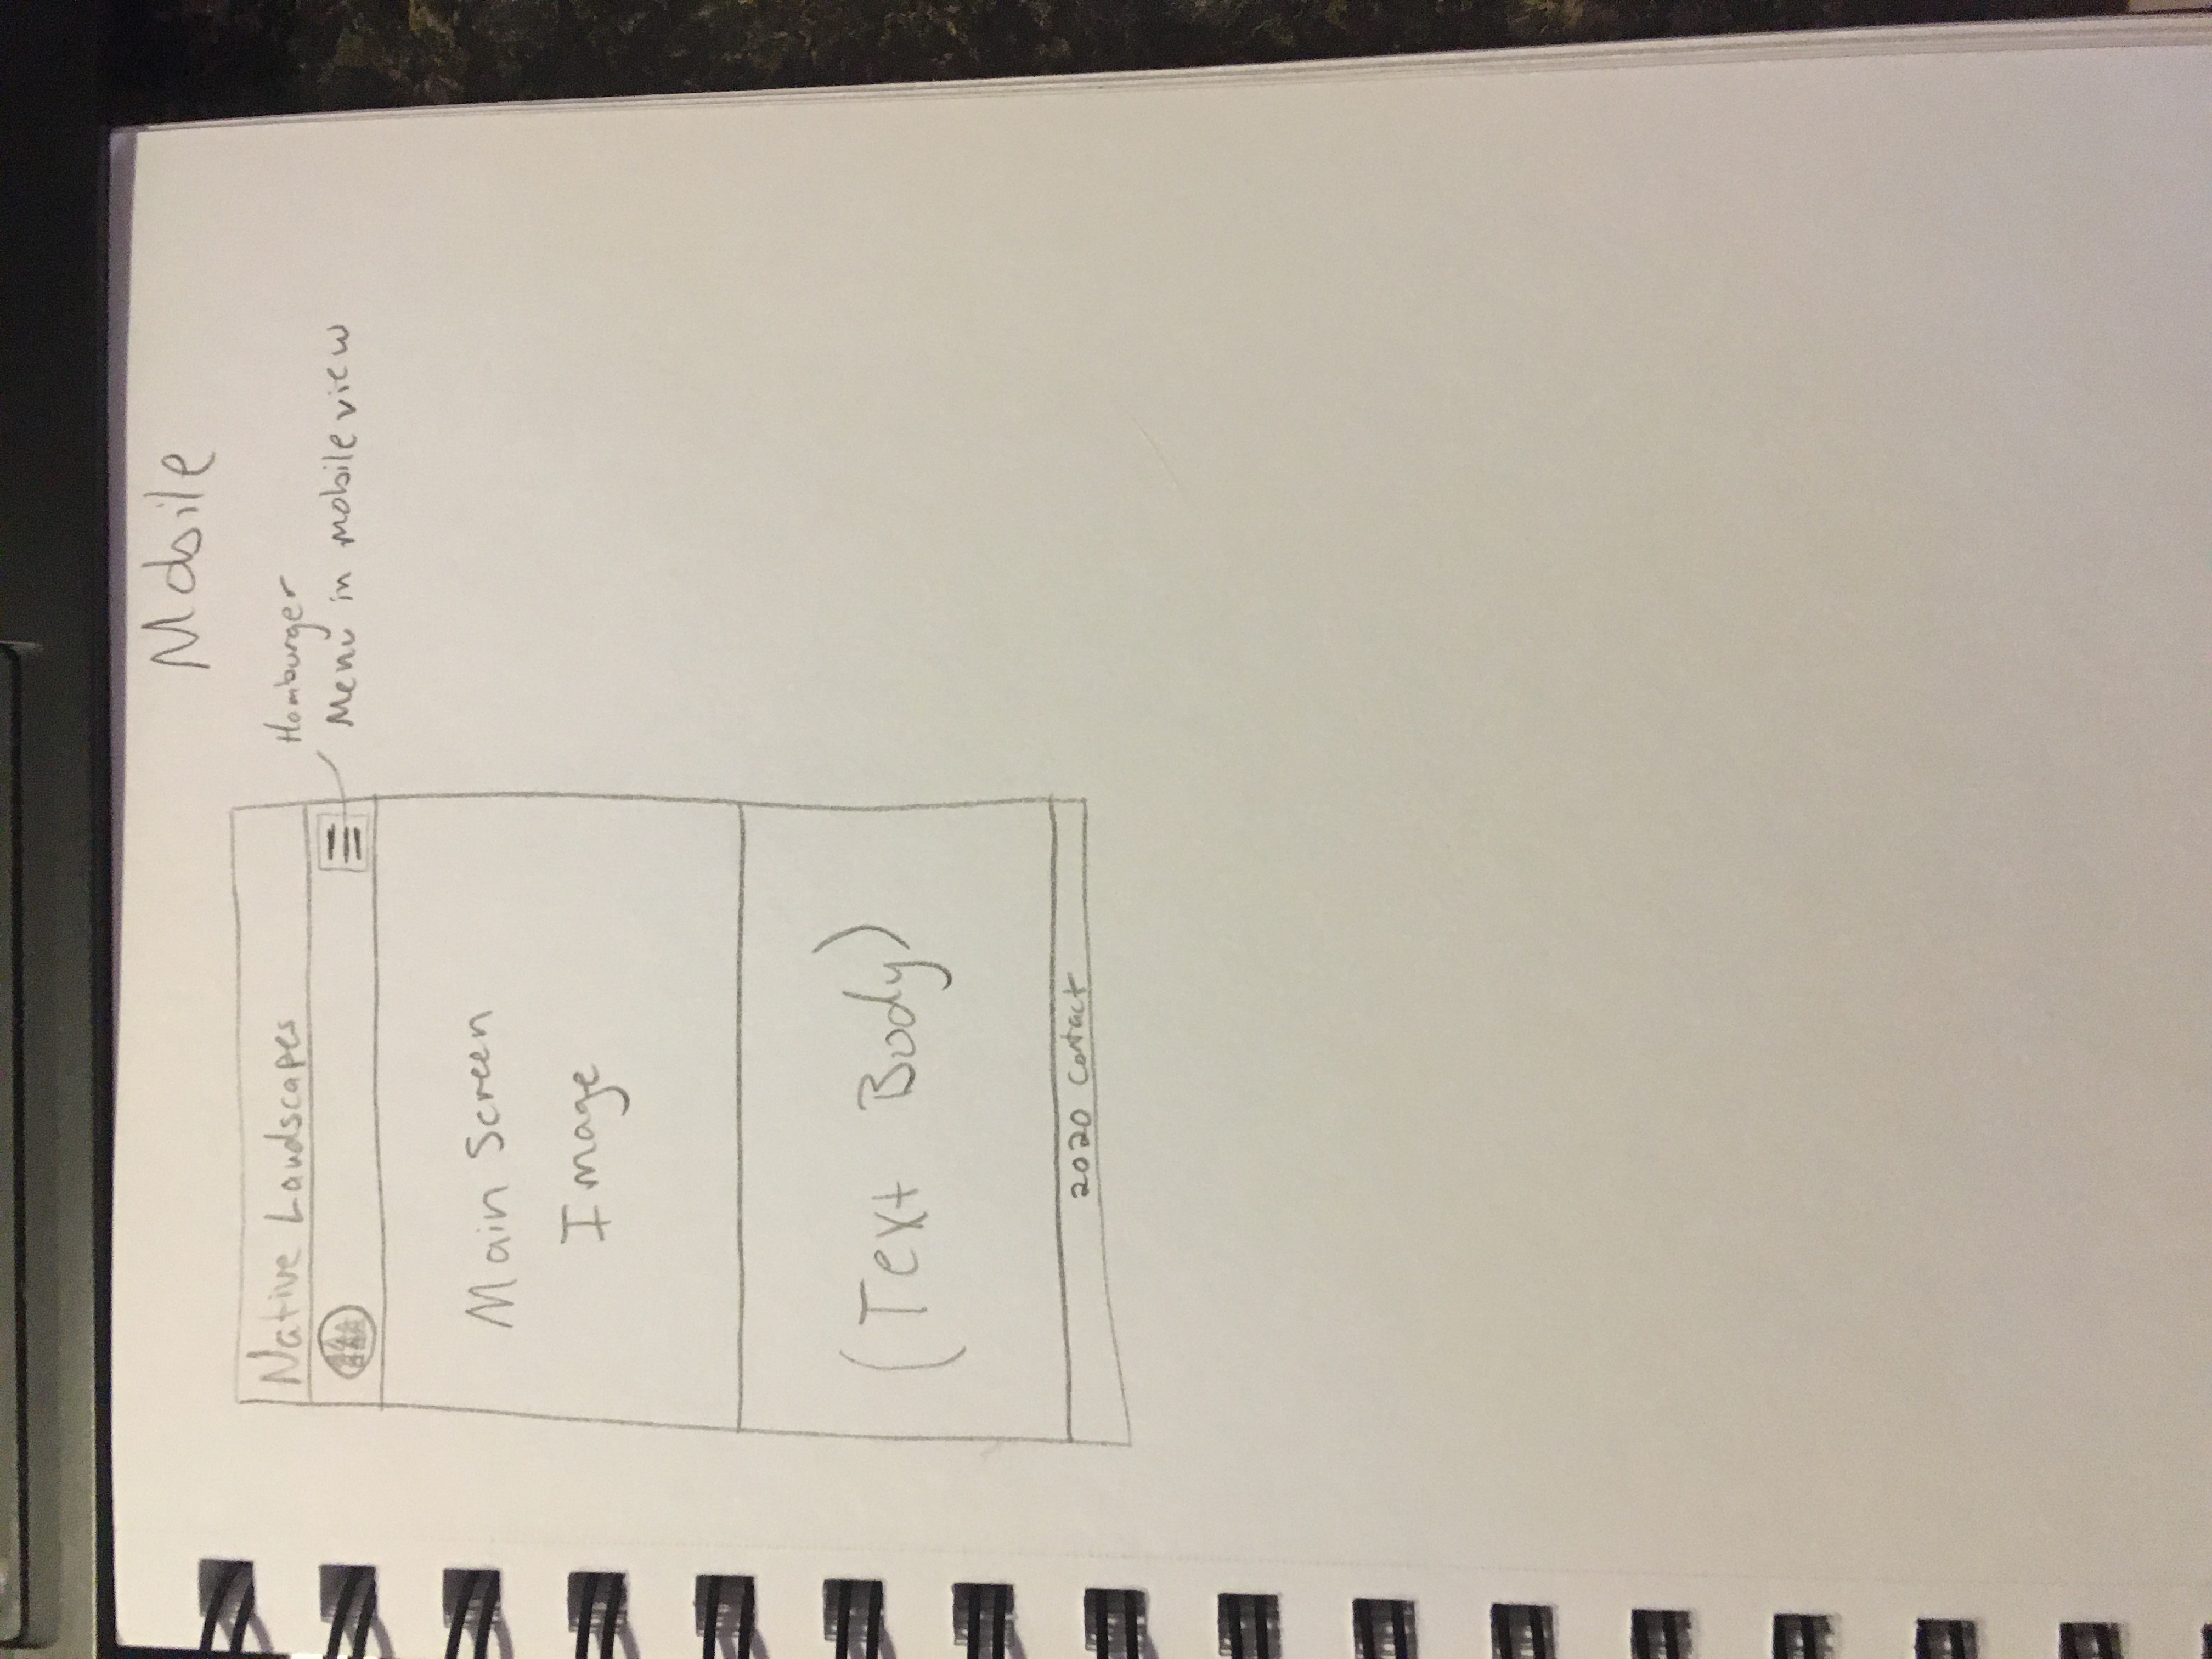 Mobile
Native Landscapes
Hamburger
Menu in mobile view
Main Screen
Image
(Text Body)
2020 Contact